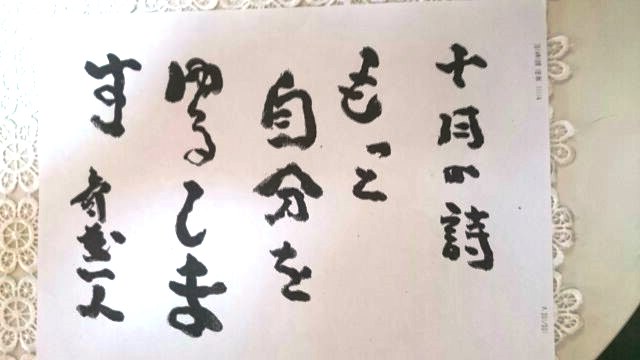 十月の詩
もっと
自分を
ゆるしま
す
一人